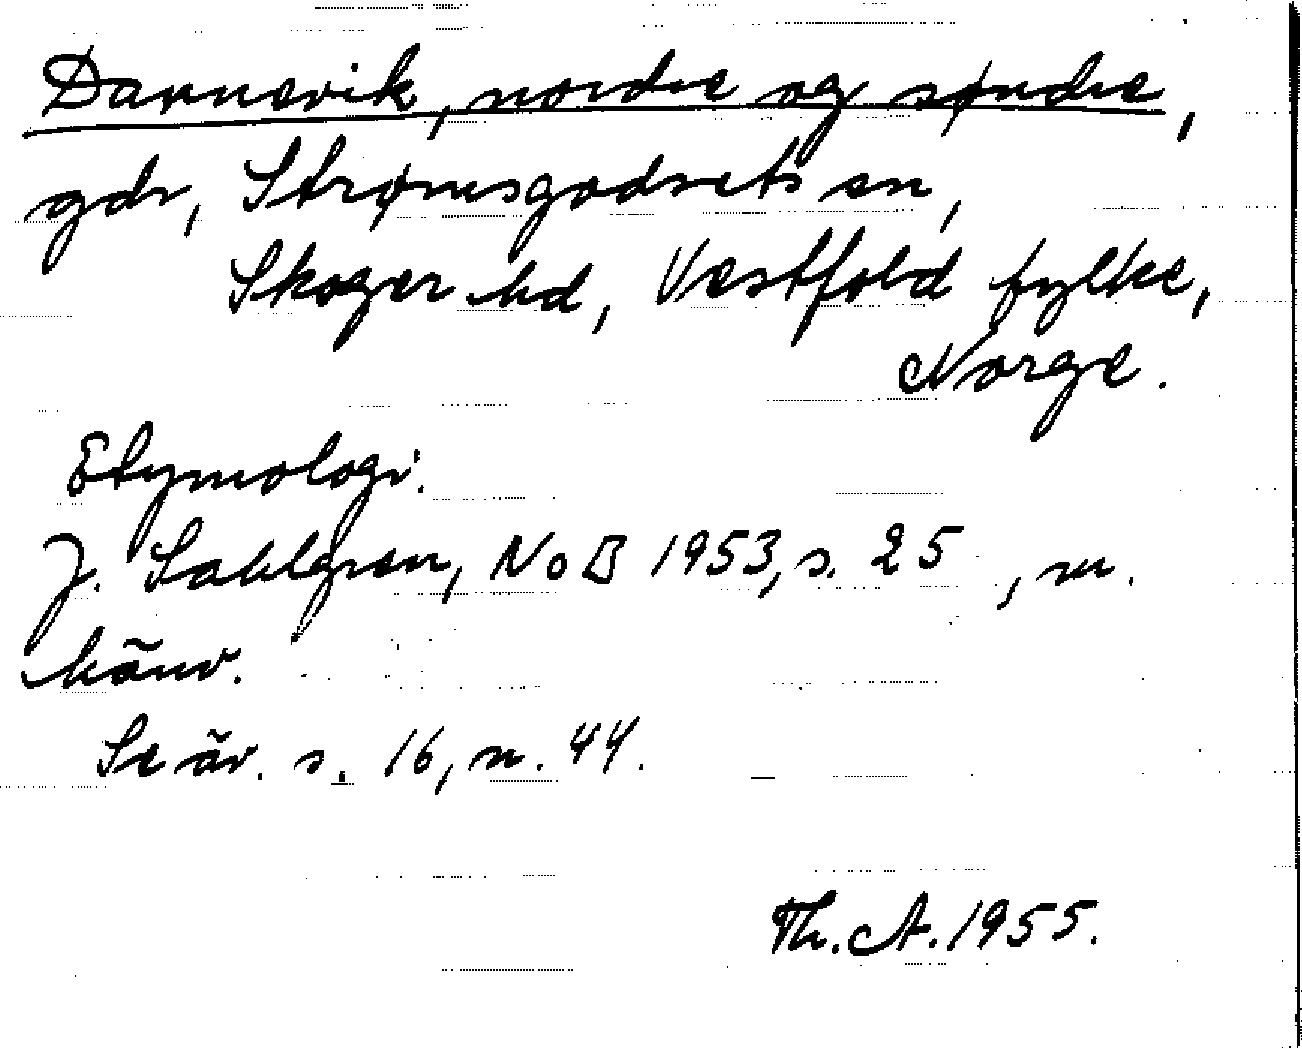 Darnevik, nordre og søndre,
gdr, Strømsgodsets sn,
Skoger hd, Vestfold fylke,
Norge.
Etymologi.
J. Sahlgren, NoB 1953, s. 25, m.
hänv.
Se äv. s. 16, n. 44.
Th. A. 1955.